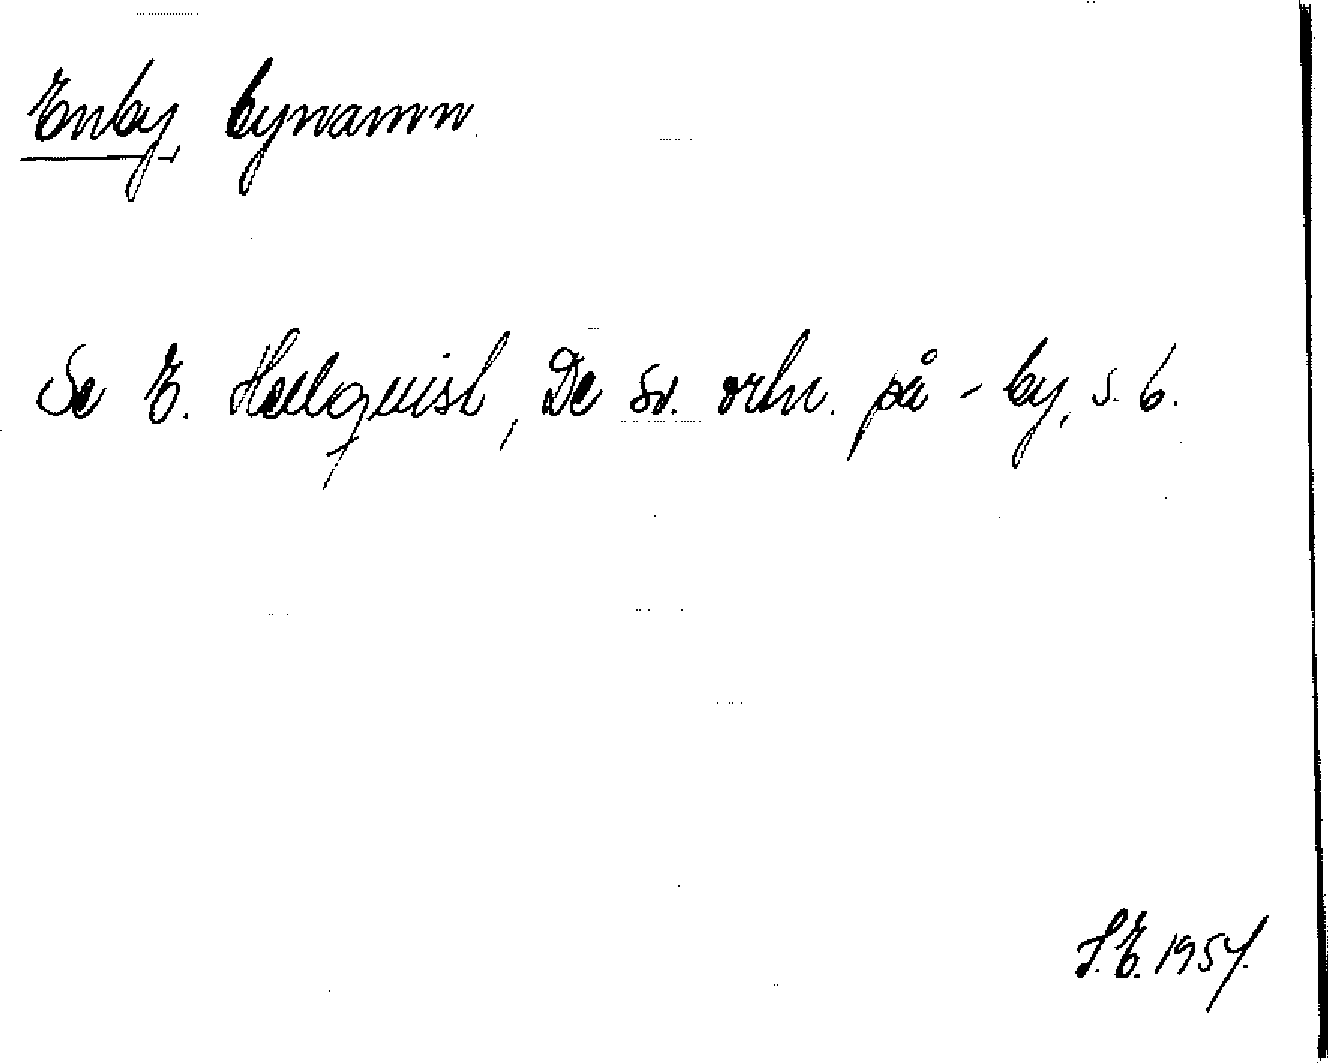 Enby, bynamn
Se E. Hellquist, De sv. ortn. på -by, s. 6.
S.E. 1954.